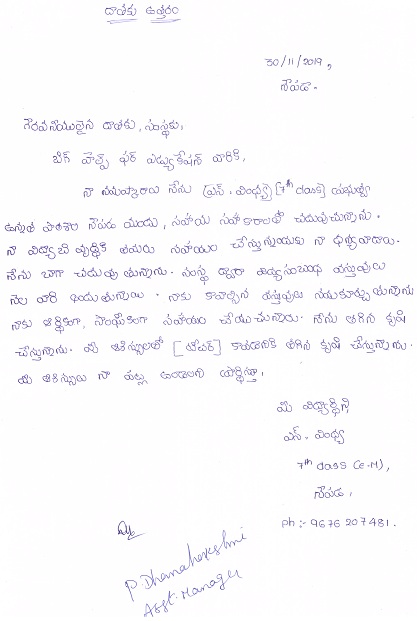 దాతకు ఉత్తరం
30/11/2019,
నౌపడ.
గౌరవనీయులైన దాతకు, సంస్థకు,
బిగ్ హెల్ప్ ఫర్ ఎడ్యుకేషన్ వారికి,
నా నమస్కారాలు నేను [ఎన్. వింధ్య] [7th class]
ఉన్నత పాఠశాల నౌపడ యందు, సహాయ సహకారాలతో చదువుచున్నాను.
నా విద్యాభివృద్ధికి తమరు సహాయం చేస్తున్నందుకు నా ధన్యవాదాలు.
నేను బాగా చదువుతున్నాను. సంస్థ ద్వారా విద్యాసంబంధ వస్తువులు
నెల వారి ఇందుతున్నాయి. నాకు కావాల్సిన వస్తువులు సమకూర్చుతున్నారు
నాకు ఆర్థికంగా, సాంఘీకంగా సహాయం చేయుచున్నారు. నేను తగిన కృషి
చేస్తున్నాను. మీ ఆశీస్సులతో [టీచర్] కావడానికి తగిన కృషి చేస్తున్నాను.
మీ ఆశీస్సులు నా పట్ల ఉండాలని యార్థిస్తూ,
మీ విద్యార్థిని,
ఎన్. వింధ్య
7th class (E.M),
నౌపడ.
Ph :- 9676207481.
P. Dhanalakshmi
Asst. Manager